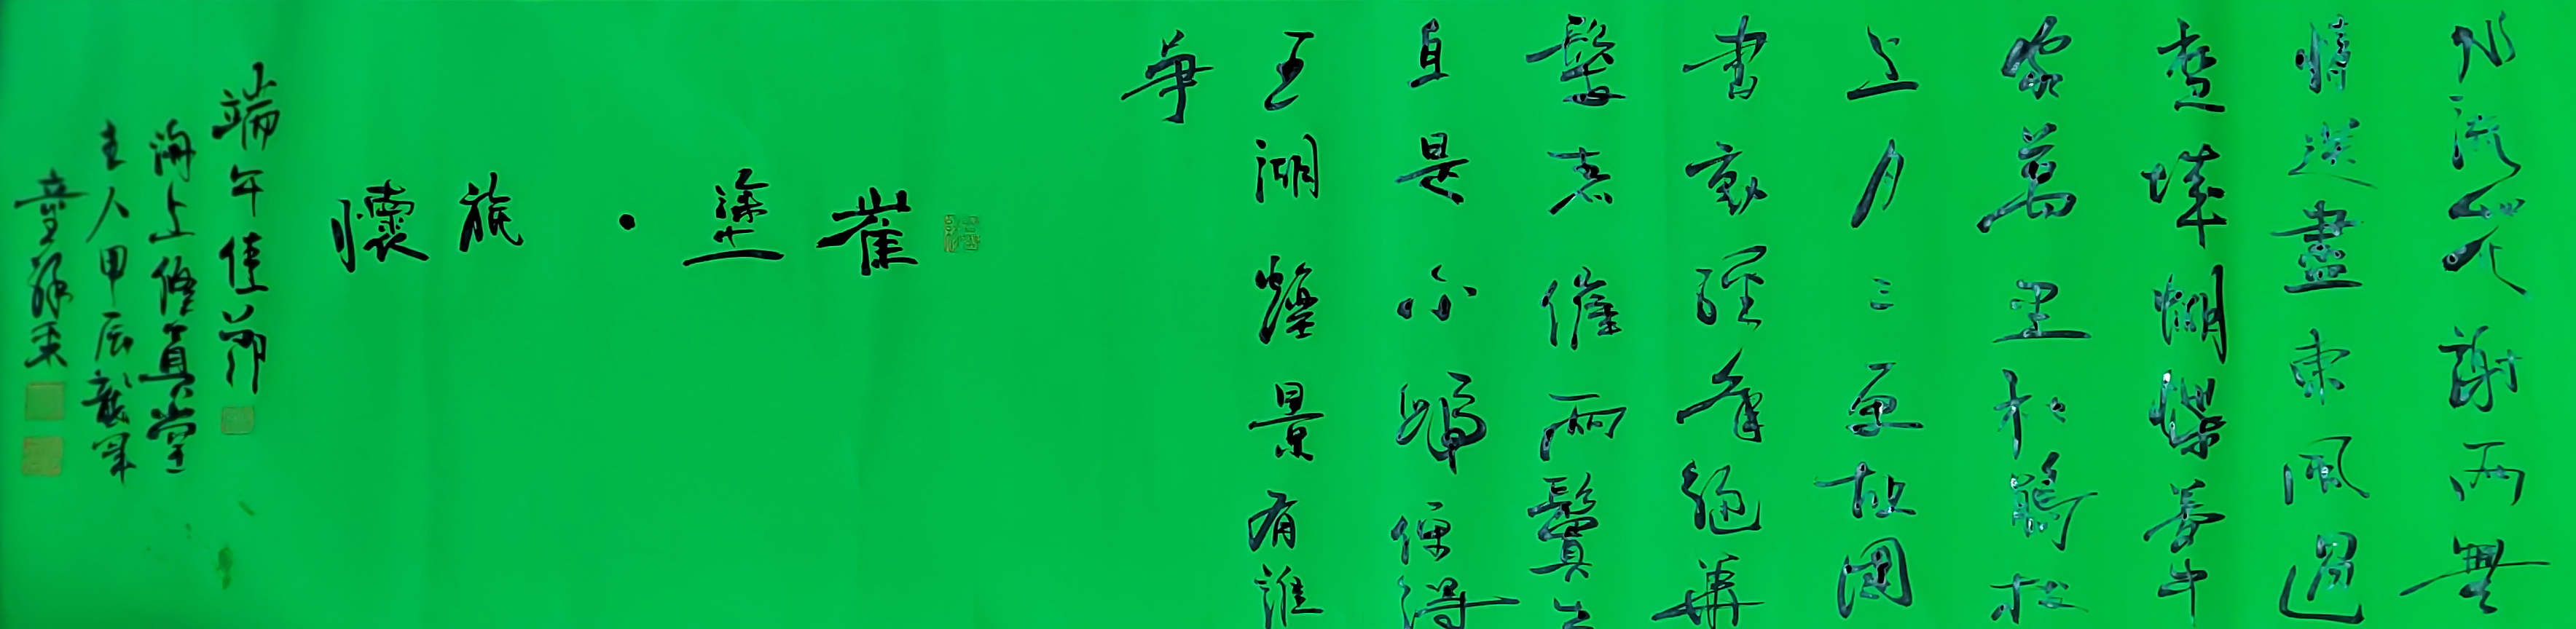 水流花謝兩無
情送盡東風過
楚城蝴蝶夢中
家萬里杜鵑枝
上月三更故園
書動經年絕華
髮春催兩鬢生
自是不歸便得
五湖煙景有誰
爭
崔塗·旅懷
端午佳節
海上修真堂
主人甲辰龍年
童